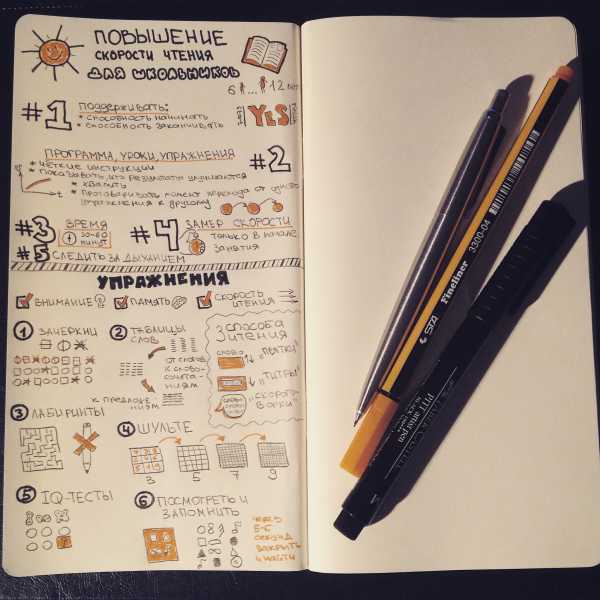 ПОВЫШЕНИЕ
СКОРОСТИ ЧТЕНИЯ
ДЛЯ ШКОЛЬНИКОВ
6 ... 12 лет
#1 ПОДДЕРЖИВАТЬ:
* СПОСОБНОСТЬ НАЧИНАТЬ
* СПОСОБНОСТЬ ЗАКАНЧИВАТЬ
YES
ПРОГРАММА, УРОКИ, УПРАЖНЕНИЯ
#2
* ЧЁТКИЕ ИНСТРУКЦИИ
* ПОКАЗЫВАТЬ, ЧТО РЕЗУЛЬТАТЫ УЛУЧШАЮТСЯ
* ХВАЛИТЬ
* ПРОГОВАРИВАТЬ МОМЕНТ ПЕРЕХОДА ОТ ОДНОГО
УПРАЖНЕНИЯ К ДРУГОМУ
t
#3 ВРЕМЯ
МИНУТ
#4 ЗАМЕР СКОРОСТИ
ТОЛЬКО В НАЧАЛЕ
ЗАНЯТИЯ
#5 СЛЕДИТЬ ЗА ДЫХАНИЕМ
УПРАЖНЕНИЯ
ВНИМАНИЕ
ПАМЯТЬ
СКОРОСТЬ
ЧТЕНИЯ
1 ЗАЧЕРКНИ
2 ТАБЛИЦЫ
СЛОВ
ОТ СЛОВ
К СЛОВО-
СОЧЕТА-
НИЯМ
К ПРЕДЛОЖЕ-
НИЯМ
3 СПОСОБА
ЧТЕНИЯ
СЛОВО
"ТИТРЫ"
"СКОРОГО-
ВОРКИ"
3 ЛАБИРИНТЫ
4 ШУЛЬТЕ
3 5 7 9
5 IQ-ТЕСТЫ
6 ПОСМОТРЕТЬ И
ЗАПОМНИТЬ
ЧЕРЕЗ
5-6
СЕКУНД
ЗАКРЫТЬ
Fineliner 3300-04
PITT artist pen